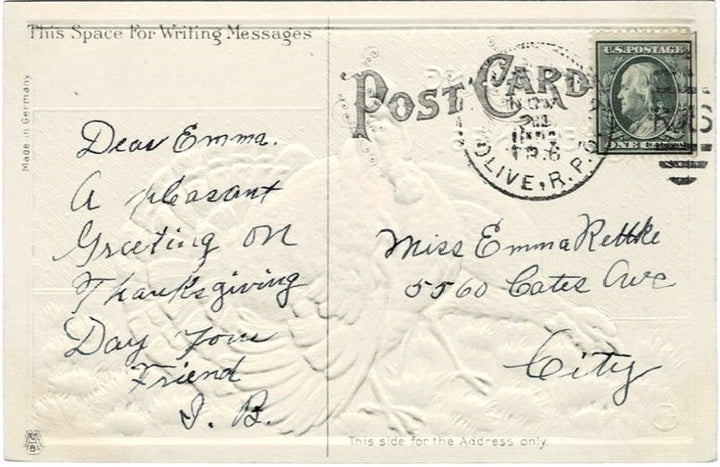 This Space For Writing Messages
Made in Germany
Dear Emma.
A pleasant
Greeting on
Thanksgiving
Day Your
Friend
I. B.
POST CARD
NOV
OLIVE, R.P.O.
U.S. POSTAGE
ONE CENT
Miss Emma Rettke
5560 Cates Ave
City
This side for the Address only.